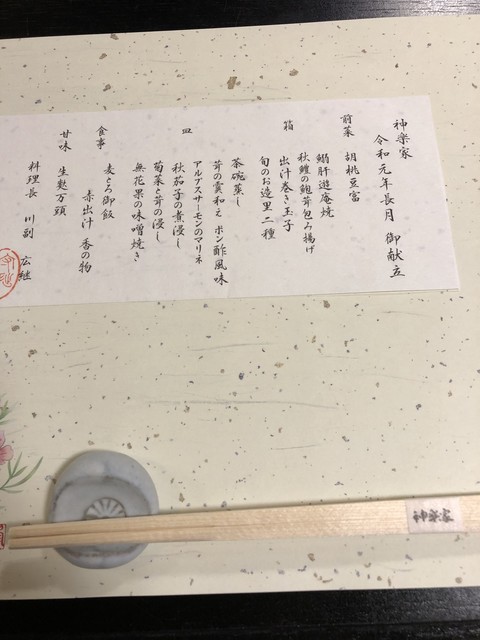 神楽家
令和元年長月 御献立
前菜 胡桃豆富
鰯肝遊庵焼
秋鱧の鮑茸包み揚げ
箱 出汁巻き玉子
旬のお造里二種
茶碗蒸し
茸の霙和え ポン酢風味
アルアスサーモンのマリネ
皿 秋茄子の煮浸し
菊菜と茸の浸し
無花果の味噌焼き
食事 麦とろ御飯
赤出汁 香の物
甘味 生麩万頭
料理長 川副 広継
神楽家